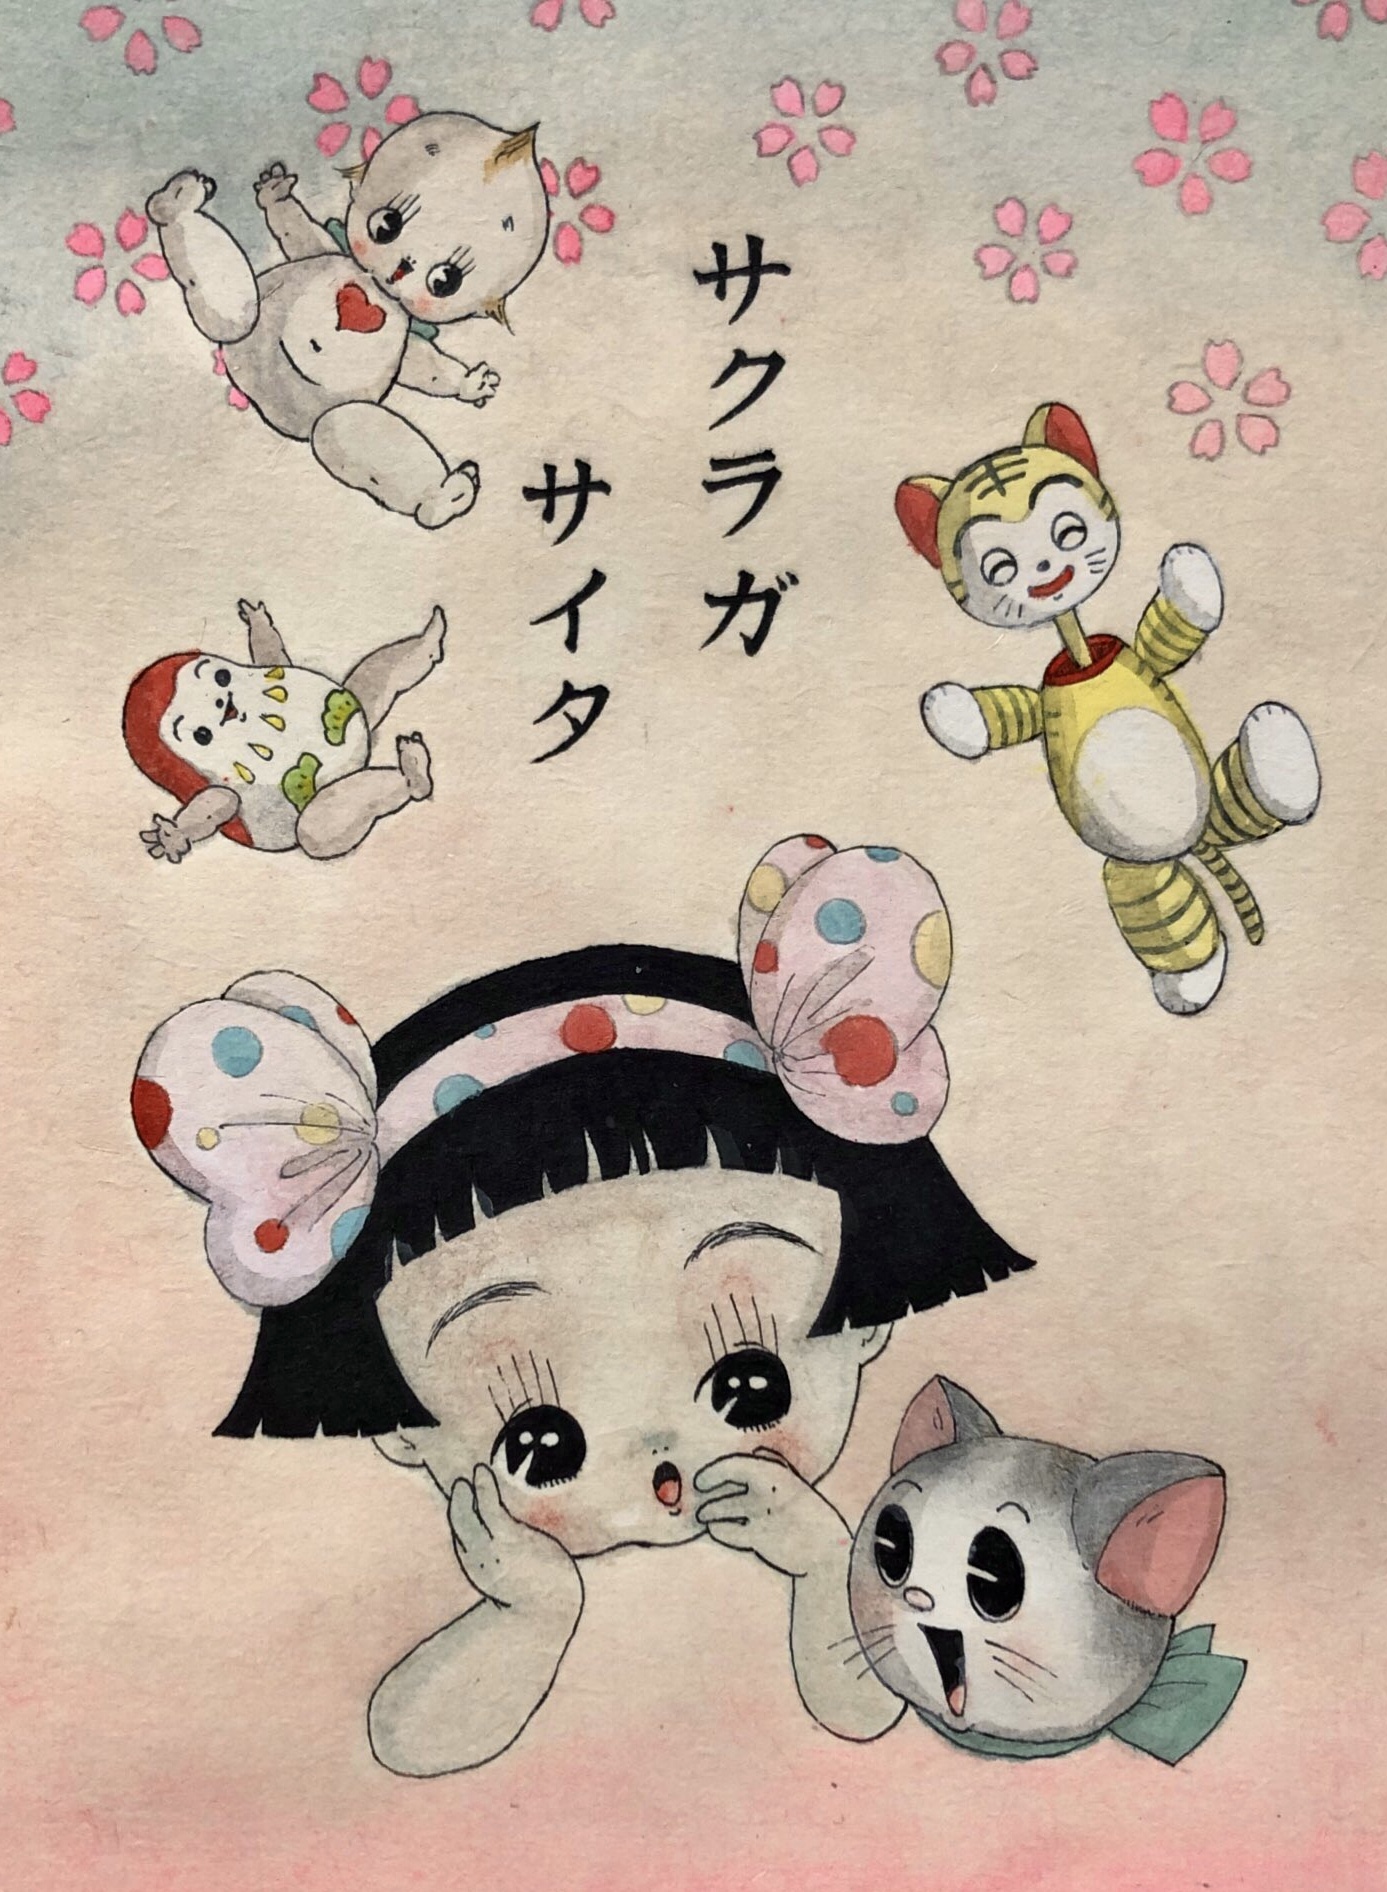 サクラガ
サイタ